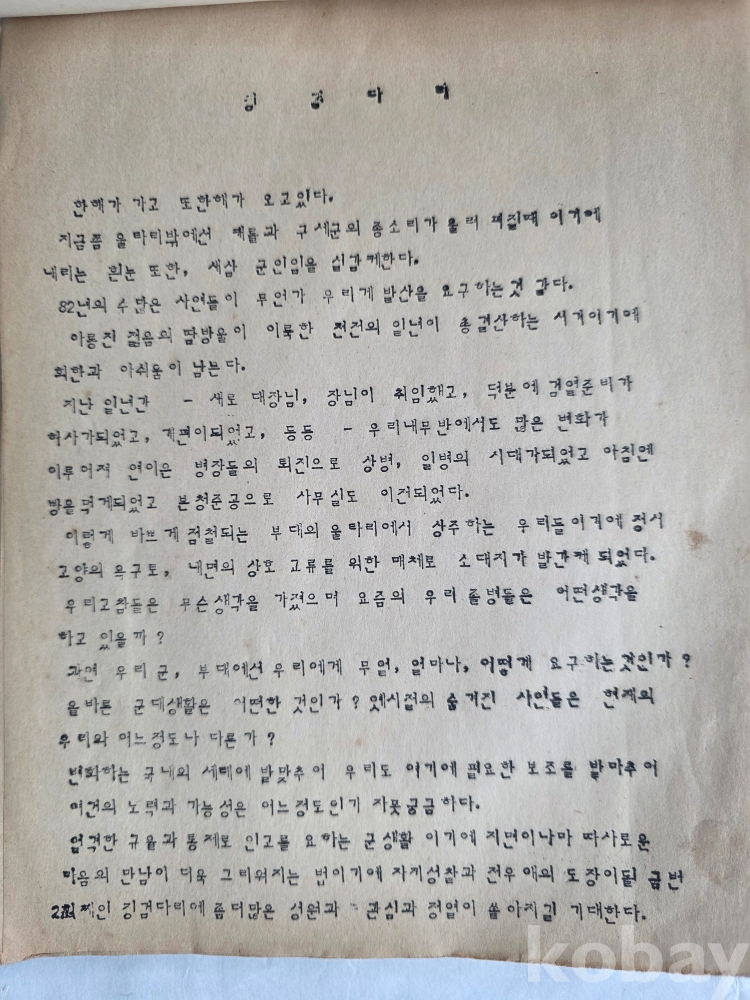 징 검 다 리
한해가 가고 또한해가 오고있다.
지금쯤 울타리밖에서 캐롤과 구세군의 종소리가 울려 퍼질때 이기에
내리는 흰눈 또한, 새삼 군인임을 실감케한다.
82년의 수많은 사연들이 무언가 우리게 발산을 요구하는것 같다.
아롱진 젊음의 땀방울이 이룩한 전진의 일년이 총결산하는 시기이기에
회한과 아쉬움이 남는다.
지난 일년간 - 새로 대장님, 장님이 취임했고, 덕분에 검열준비가
행사가되었고, 개편이되었고, 등등 - 우리내무반에서도 많은 변화가
이루어져 연이은 병장들의 퇴진으로 상병, 일병의 시대가되었고 아침엔
빵을먹게되었고 본청준공으로 사무실도 이전되었다.
이렇게 바쁘게 점철되는 부대의 울타리에서 상주하는 우리들이기에 정서
고양의 욕구로, 내면의 상호 교류를 위한 매체로 소대지가 발간케 되었다.
우리고참들은 무슨생각을 가졌으며 요즘의 우리 졸병들은 어떤생각을
하고 있을까?
과연 우리군, 부대에선우리에게 무얼, 얼마나, 어떻게 요구하는것인가?
올바른 군대생활은 어떠한 것인가? 옛시절의 숨겨진 사연들은 현재의
우리와 어느정도나 다른가?
변화하는 국내의 세태에 발맞추어 우리도 여기에 필요한 보조를 발마추어
여건의 노력과 가능성은 어느정도인가 자못궁금하다.
엄격한 규율과 통제로 인고를 요하는 군생활 이기에 지면이나마 따사로운
마음의 만남이 더욱 그리워지는 법이기에 자기성찰과 전우애의 도장이될 금번
2회째인 징검다리에 좀더많은 성원과 관심과 정열이 쏟아지길 기대한다.
kobay